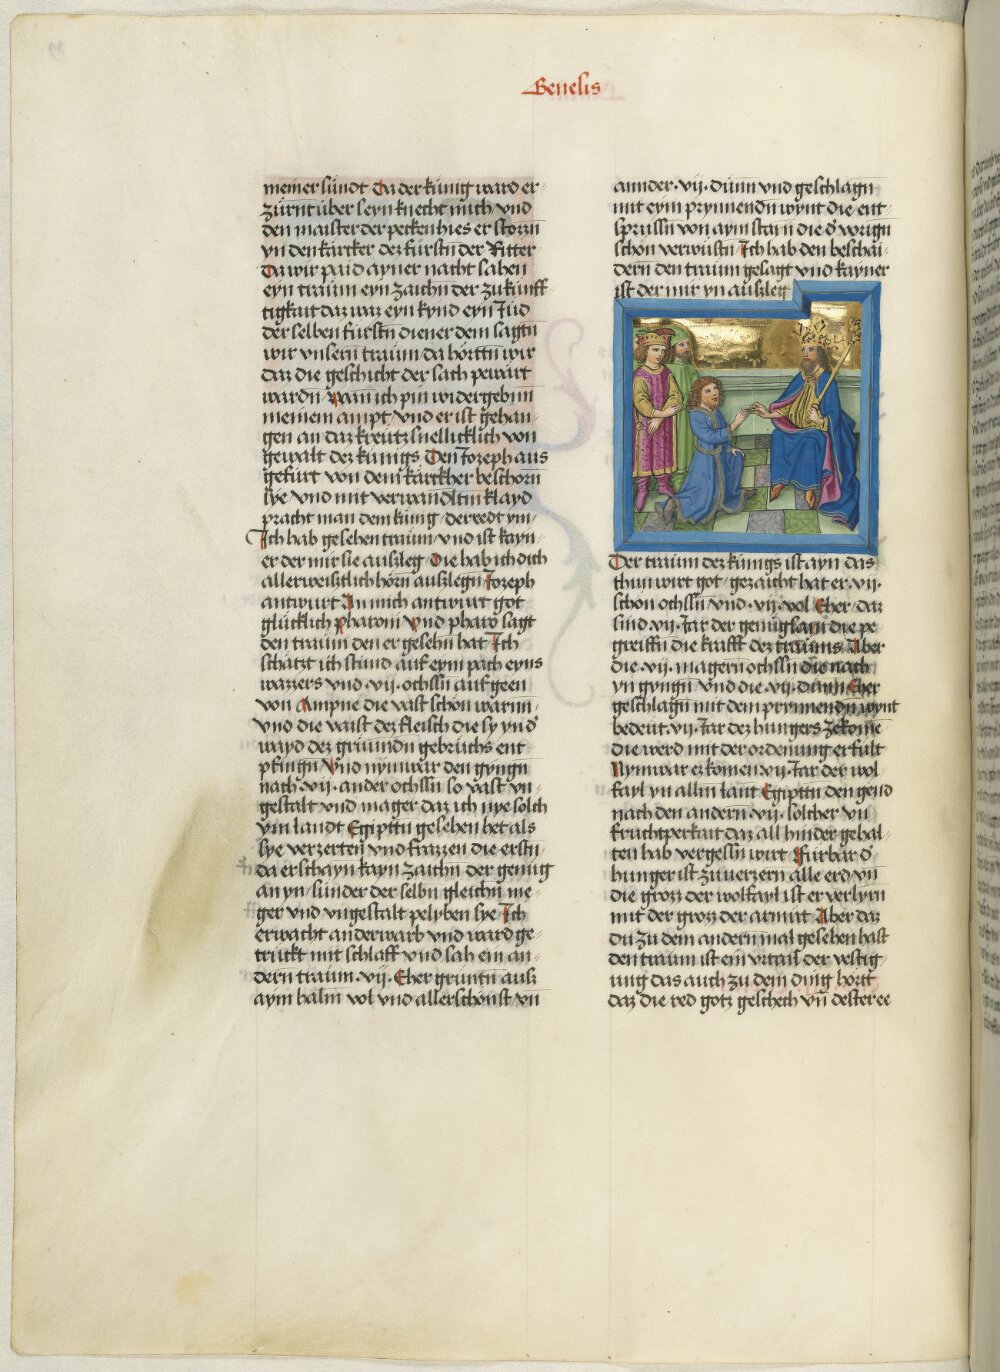 Genesis
meiner sündt Da der künig ward er-
zürnt über seyn knecht mich vnd
den maister der pecken hies er stozzn
yn den kärcker dez fürstn der Ritter
Da wir paid ayner nacht sahen
eyn traüm eyn zaichn der zükünff-
tigkait daz waz eyn kynd eyn Jüd
der selben fürstn diener dem sagtn
wir vnsern traüm da hörttn wir
daz die geschicht der sach pewärt
wardn wan ich pin widergebnn
meinem ampt vnd er ist gehan-
gen an daz kreütz snellicklich von
gewalt dez künigs Den Jozeph aus
gefürt von dem kärckher beschorn
sye vnd mit verwandltm klayd
pracht man dem künig der redt ym
Ich hab gesehen traüm vnd ist kayn-
er der mir sie auszleg Die hab ich dich
allerweiszlich hörn auszlegn Jozeph
antwurt An mich antwurt got
glücklich pharoni Vnd pharo sagt
den traüm den er gesehn hat Ich
schätzt ich stünd auf eym pach eyns
wazzers vnd .vij. ochssn auf geen
von Ampne die vast schön warnn
vnd die vaist dez fleisch die sy yn d
wayd dez grüündn gebrüchs ent-
pfingn Vnd nym war den gyngn
nach .vij. ander ochssn so vast vn-
gestalt vnd mager daz ich nye solch
ym landt Egipttn gesehen het als
sye verzerten vnd frazzen die erstn
da erschayn kayn zaichn der genüg
an yn sünder der selbn gleichn me-
ger vnd vngestalt pelyben sye Ich
erwacht anderwarb vnd ward ge-
trückt mit schlaff vnd sah ein an-
dern traüm .vij. Eher grüntn ausz
aym halm vol vnd allerschönst vn
annder .vij. dünn vnd geschlagn
mit eym prynnendn wynt die ent-
sprussn von aym stam die d vorign
schön verwüstn Ich hab den beschai-
dern den traüm gesagt vnd kayner
ist der mir yn auszleg
Der traüm dez künigs ist ayn das
thun wirt got gezaicht hat er .vij.
schön ochssn vnd .vij. vol Eher daz
sind .vij. Jar der genügsam die pe-
greiffn die krafft dez traüms Aber
die .vij. magern ochssn die nach
yn gyngn vnd die .vij. dünn Eher
geschlagn mit dem prynnendn wynt
bedeüt .vij. Jar dez hungers zekome
die werd mit der ordenüng erfült
Nym war ez komen .vij. Jar der wol-
fayl yn allm lant Egipttn den gend
nach den andern .vij. sölcher vn-
früchtperkait daz all hinder gehal-
ten hab vergessn wirt Fürbar d
hunger ist zuuerzern alle erd vn
die grosz der wolfayl ist er verlyrn
mit der grosz der armüt Aber daz
du zu dem andern mal gesehen hast
den traüm ist ein vrtail der vestig-
ung das auch zu dem ding hört
daz die red gotz geschech vn dester ee